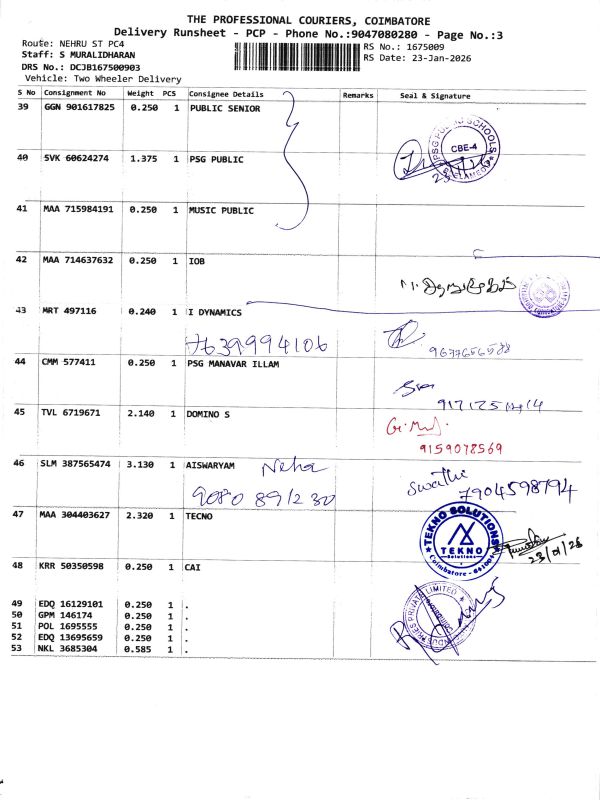 THE PROFESSIONAL COURIERS, COIMBATORE
Delivery Runsheet - PCP - Phone No.:9047080280 - Page No.:3
Route: NEHRU ST PC4
RS No.: 1675009
Staff: S MURALIDHARAN
RS Date: 23-Jan-2026
DRS No.: DCJB167500903
Vehicle: Two Wheeler Delivery
S No Consignment No Weight PCS Consignee Details Remarks Seal & Signature
39 GGN 901617825 0.250 1 PUBLIC SENIOR
PSG PUBLIC SCHOOLS
CBE-4
40 SVK 60624274 1.375 1 PSG PUBLIC
41 MAA 715984191 0.250 1 MUSIC PUBLIC
42 MAA 714637632 0.250 1 IOB
43 MRT 497116 0.240 1 I DYNAMICS
7639994106
9677656588
44 CMM 577411 0.250 1 PSG MANAVAR ILLAM
45 TVL 6719671 2.140 1 DOMINO S
9159078569
46 SLM 387565474 3.130 1 AISWARYAM Neha Swathi
9080 891230 7904598794
47 MAA 304403627 2.320 1 TECNO
TEKNO SOLUTIONS
TEKNO
Solutions
Coimbatore
23/01/26
48 KRR 50350598 0.250 1 CAI
49 EDQ 16129101 0.250 1 .
50 GPM 146174 0.250 1 .
51 POL 1695555 0.250 1 .
52 EDQ 13695659 0.250 1 .
53 NKL 3685304 0.585 1 .
PRIVATE LIMITED